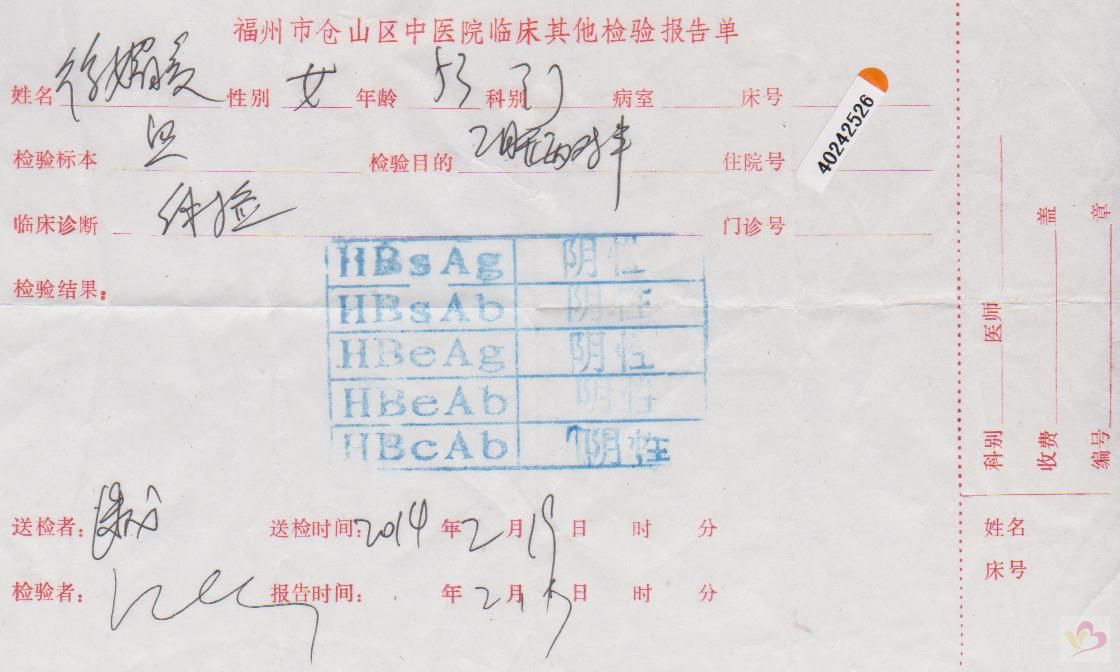 福州市仓山区中医院临床其他检验报告单
姓名 徐媚爱 性别 女 年龄 53 科别 门 病室 床号
40242526
检验标本 血 检验目的 乙肝两对半 住院号
临床诊断 体检 门诊号
检验结果:
HBsAg 阴性
HBsAb 阴性
HBeAg 阴性
HBeAb 阴性
HBcAb 阴性
送检者: 送检时间: 2014 年 2 月 19 日 时 分
检验者: 报告时间: 年 2 月 日 时 分
科别 医师
收费 盖
编号 章
姓名
床号